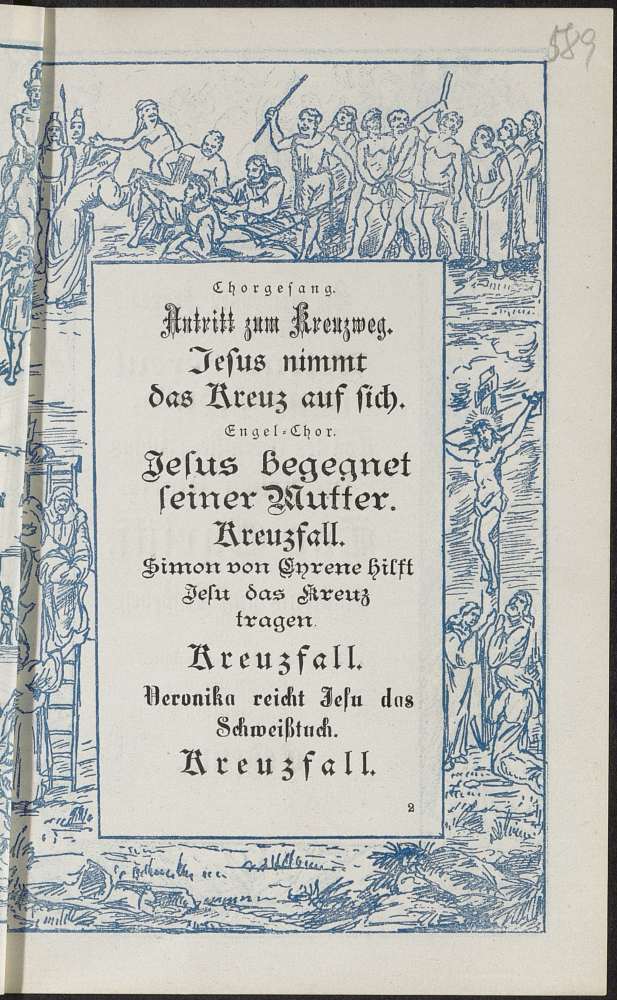 589
Chorgesang.
Antritt zum Kreuzweg.
Jesus nimmt
das Kreuz auf sich.
Engel-Chor.
Jesus begegnet
seiner Mutter.
Kreuzfall.
Simon von Cyrene hilft
Jesu das Kreuz
tragen.
Kreuzfall.
Veronika reicht Jesu das
Schweißtuch.
Kreuzfall.
2